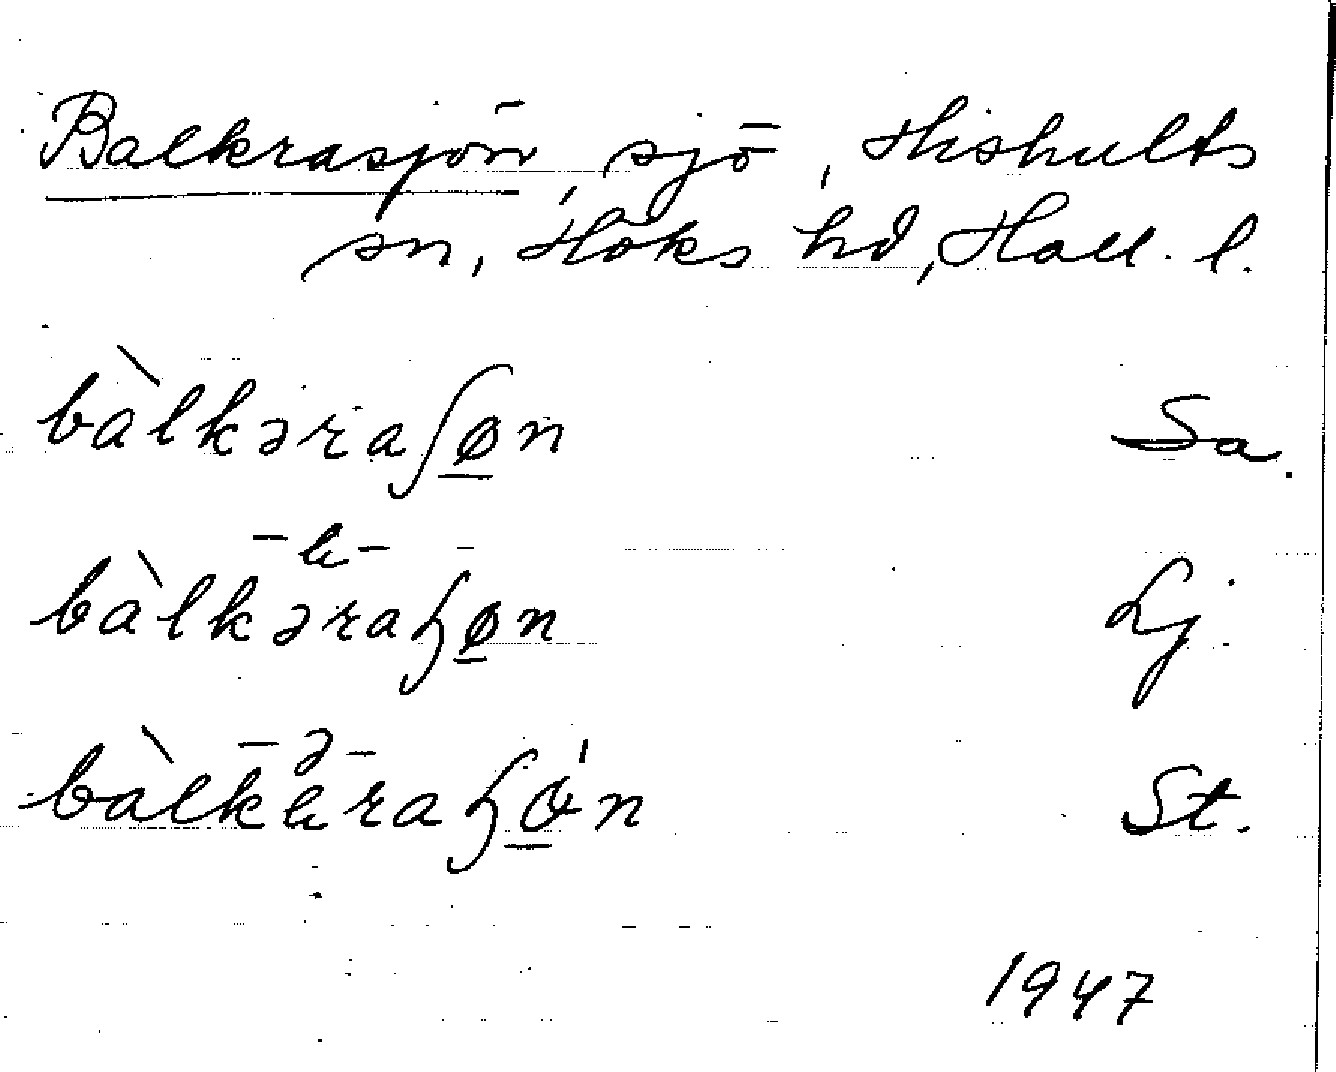 Balkrasjön, sjö, Hishults
sn, Höks hd, Hall. l.
bàlkəraʃø̲n Sa.
-e-
bàlkəraɧø̲n Lj.
-ə-
bàlkeraɧǿ̲n St.
1947